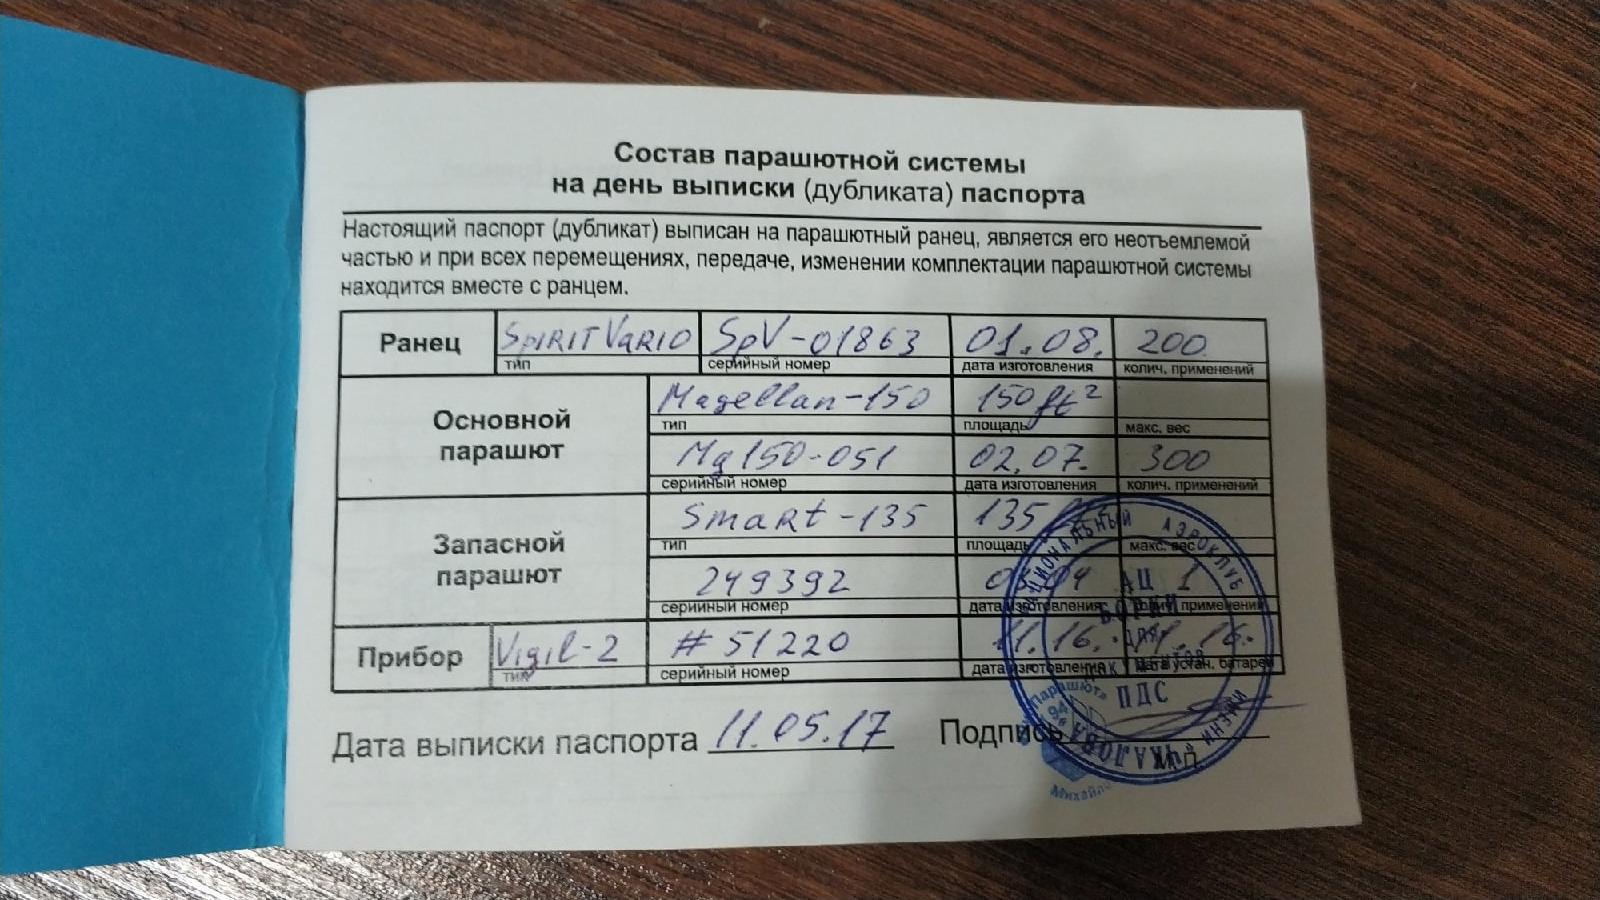 Состав парашютной системы
на день выписки (дубликата) паспорта
Настоящий паспорт (дубликат) выписан на парашютный ранец, является его неотъемлемой
частью и при всех перемещениях, передаче, изменении комплектации парашютной системы
находится вместе с ранцем.
Ранец SpiRiT VaRiO SpV-01863 01.08. 200
тип серийный номер дата изготовления колич. применений
Основной парашют
Magellan-150 150 ft²
тип площадь макс. вес
Mg150-051 02.07. 300
серийный номер дата изготовления колич. применений
Запасной парашют
Smart-135 135
тип площадь макс. вес
249392
серийный номер дата изготовления колич. применений
Прибор Vigil-2 # 51220 11.16. 11.16.
тип серийный номер дата изготовления дата устан. батареи
Дата выписки паспорта 11.05.17 Подпись
М.П.
НАЦИОНАЛЬНЫЙ АЭРОКЛУБ ИМЕНИ ЧКАЛОВА
АЦ 1
БОРКИ
ДЛЯ
ДОКУМЕНТОВ
ПДС
Парашют